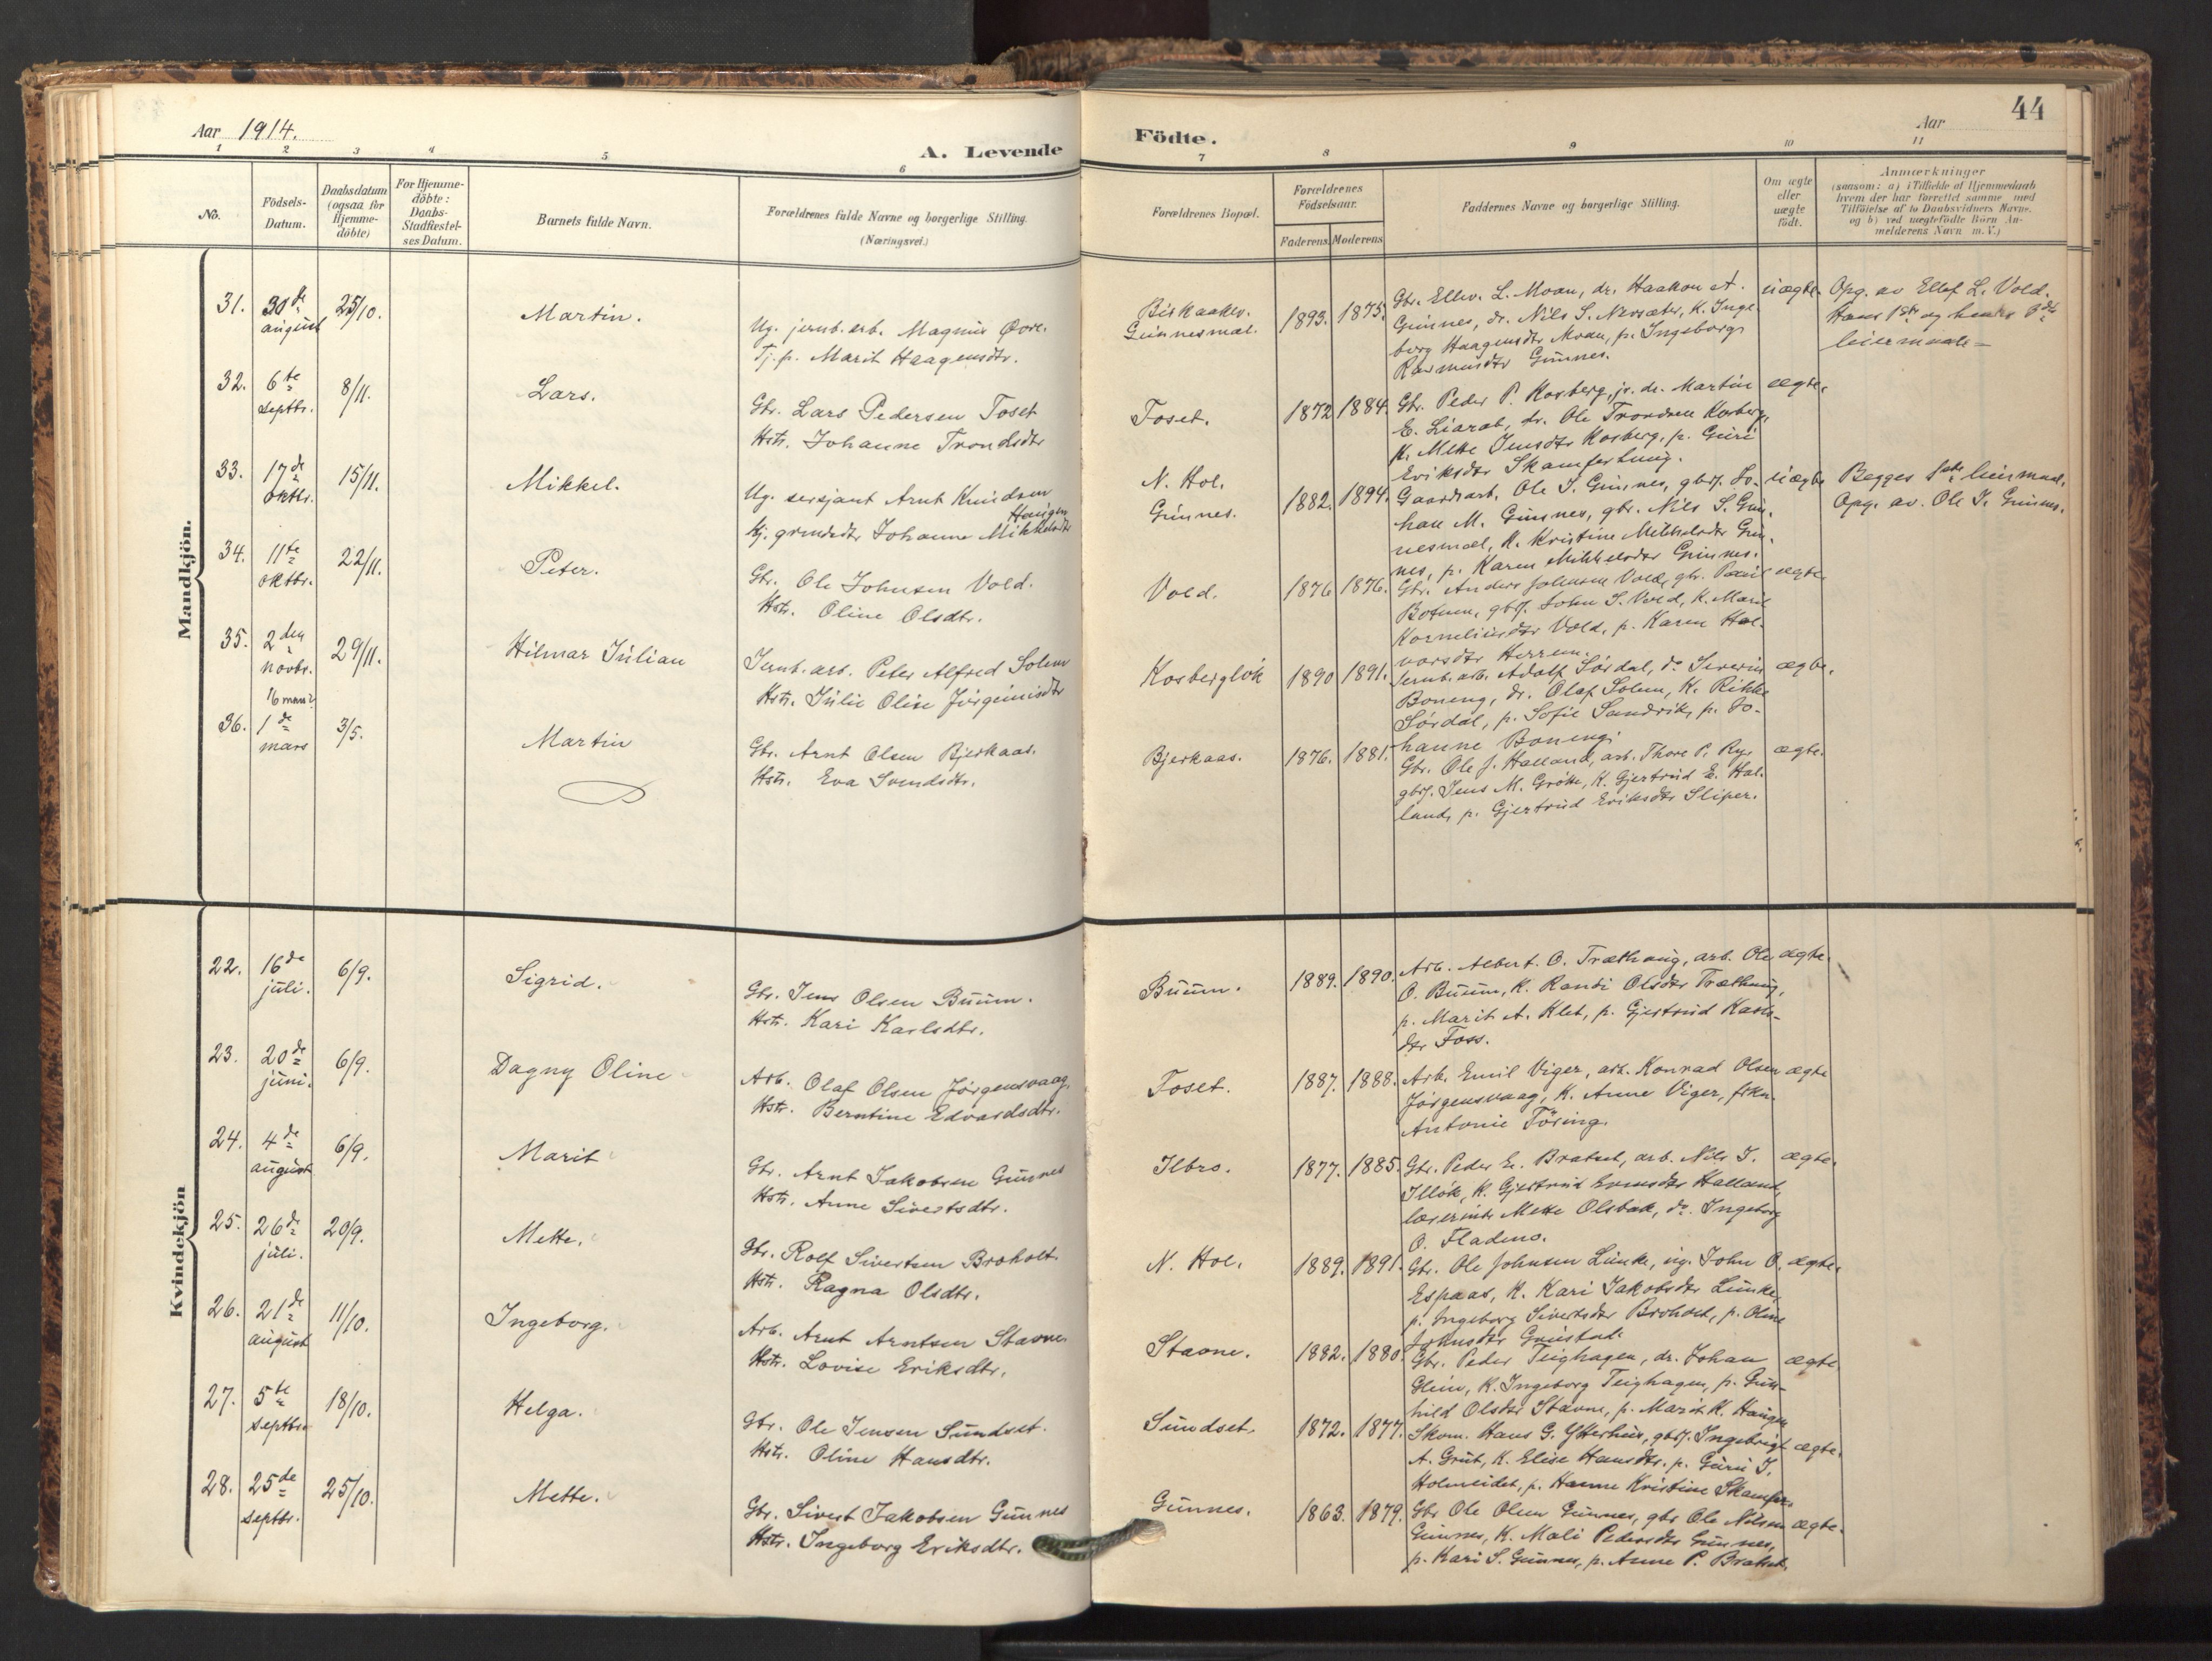 44
Aar 1914.
A. Levende
Födte.
Aar
1 2 3 4 5 6
7 8 9 10 11
No.
Födsels-
Datum.
Daabsdatum
(ogsaa for
Hjemme-
döbte)
For Hjemme-
döbte:
Daabs-
Stadfæstel-
ses Datum.
Barnets fulde Navn.
Forældrenes fulde Navne og borgerlige Stilling.
(Næringsvei.)
Forældrenes Bopæl.
Forældrenes
Födselsaar.
Faderens.
Moderens
Faddernes Navne og borgerlige Stilling.
Om ægte
eller
uægte
födt.
Anmærkninger
(saasom: a) i Tilfælde af Hjemmedaab
hvem der har forrettet samme med
Tilföielse af to Daabsvidners Navne.
og b) ved uægtefödte Börn An-
melderens Navn m. V.)
Mandkjön.
31.
30 de
august
25/10.
Martin.
Ug. jernb. arb. Magnus
Tj. p. Marit Haagensdtr.
Gunnesmal.
1893. 1875.
Gbr. Ellev. L. Moan, dr. Haakon A.
Gunnes, dr. Nils S. K. Inge-
borg Haagensdtr Moan, p. Ingeborg
Rasmusdtr Gunnes.
uægte.
Opg. av Ellef L. Vold.
Hans 1ste og hendes
leiermaal
32.
6 te
septbr.
8/11.
Lars.
Gbr. Lars Pedersen Toset
Hstr. Johanne Trondsdtr
Toset.
1872 1884.
Gbr. Peder P. Kosberg, jr. dr. Martin
E. Liarab, dr. Ole Trondsen Kosberg,
K. Mette Jensdtr Kosberg, p. Guri
Eriksdtr Skamferhaug.
ægte.
33.
17 de
oktbr.
15/11.
Mikkel.
Ug. sersjant Arnt Knudsen
Haugen
Kj. grmdsdtr Johanne Mikkelsdtr
N. Hol.
Gunnes.
1882. 1894.
Gaardsarb. Ole J. Gunnes, gbrs. Jo-
han M. Gunnes, gbr. Nils S. Gun-
nesmæl, K. Kristine Mikkelsdtr Gun-
nes, p. Karen Mikkelsdtr Gunnes.
uægte
Begges 1ste leiermaal.
Opg. av. Ole J. Gunnes.
34.
11 te
oktbr.
22/11.
Peter.
Gbr. Ole Johnsen Vold.
Hstr. Oline Olsdtr.
Vold.
1876 1876.
Gbr. Anders Johnsen Vold, gbr. Paul
Botnen, gbrs. John S. Vold, K. Marit
Korneliusdtr Vold, p. Karen Hal-
vorsdtr Herrem.
ægte.
35.
2 den
novbr.
29/11.
Hilmar Julian
Jernb. arb. Peter Alfred Solem
Hstr. Julie Oline Jörginusdtr
Kosberglök
1890 1891.
Jernb. arb. Adolf Sørdal, do Severin
Boneng, dr. Olaf Solem, K. Rikke
Sørdal, p. Sofie Sandvik, p. Jo-
hanne Boneng.
ægte.
36.
1 de
mars
3/5.
Martin
Gbr. Arnt Olsen Bjerkaas.
Hstr. Eva Svendsdtr.
Bjerkaas.
1876. 1881.
Gbr. Ole J. Halland, arb. Thore P. Rye
gbrs. Jens M. Gröthe, K. Gjertrud E. Hal-
land, p. Gjertrud Eriksdtr Sliper.
ægte.
Kvindekjön
22.
16 de
juli.
6/9.
Sigrid.
Gbr. Jens Olsen Buum.
Hstr. Kari Karlsdtr.
Buum.
1889. 1890.
Arb. Albert. O. Træthaug, arb. Ole
O. Buum, K. Randi Olsdtr Træthaug,
p. Marit A. Klet, p. Gjertrud Karls-
dtr Foss.
ægte.
23.
20 de
juni.
6/9.
Dagny Oline
Arb. Olaf Olsen Jørgensvaag.
Hstr. Berntine Edvardsdtr.
Toset.
1887. 1888.
Arb. Emil Viger, arb. Konrad Olsen
Jørgensvaag, K. Anne Viger, frkn.
Antonie Föring.
ægte
24.
4 de
august
6/9.
Marit
Gbr. Arnt Jakobsen Gunnes
Hstr. Anne Sivertsdtr.
Ilbro.
1877. 1885.
Gbr. Peder E. Bratset, arb. Nils J.
Illøk, K. Gjertrud Halland,
lærerinde Mette Olsbak, do. Ingeborg
O. Fladmo.
ægte.
25.
26 de
juli.
20/9.
Mette.
Gbr. Rolf Sivertsen Broholt.
Hstr. Ragna Olsdtr.
N. Hol.
1889. 1891.
Gbr. Ole Johnsen Lunke, ug. John O.
Espaas, K. Kari Jakobsdtr Lunke,
p. Ingeborg Sivertsdtr Broholt, p. Oline
Johnsdtr
ægte.
26.
21 de
august
11/10.
Ingeborg.
Arb. Arnt Arntsen Stavne
Hstr. Lovise Eriksdtr.
Stavne.
1882. 1880.
Gbr. Peder Teighagen, dr. Johan
K. Ingeborg Teighagen, p. Gun-
hild Olsdtr Stavne, p. Marit K. Haugen
ægte.
27.
5 te
septbr.
18/10.
Helga.
Gbr. Ole Jensen Sundset.
Hstr. Oline Hansdtr.
Sundset.
1872. 1877.
Skom. Hans G. Ytterhus, gbrs. Ingebrigt
A. Grut, K. Elise Hansdtr. p. Guru J.
Holmeidet, p. Hanne Kristine
ægte.
28.
25 de
septbr.
25/10.
Mette.
Gbr. Sivert Jakobsen Gunnes
Hstr. Ingeborg Eriksdtr.
Gunnes.
1863. 1879.
Gbr Ole Olsen Gunnes, gbr Ole Nilsen
Gunnes, K. Mali Pedersdtr Gunnes,
p. Kari S. Gunnes, p. Anne P. Bratset.
ægte.